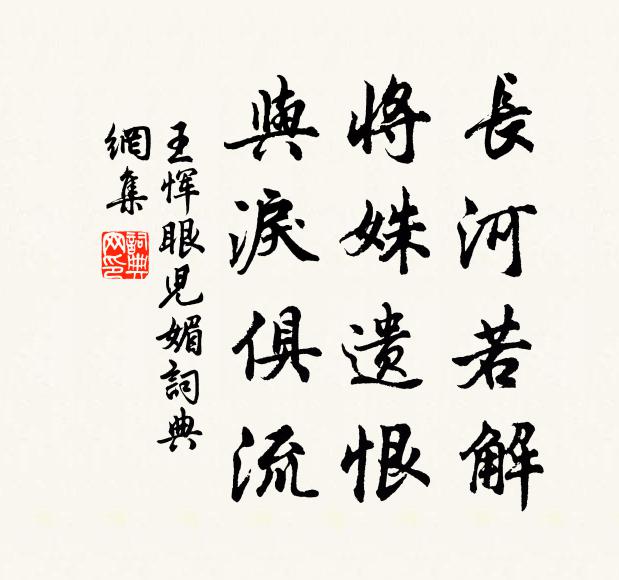 長河若解
將姝遗恨
與淚俱流
王惲眼児媚詞典
網集
詞典
网印